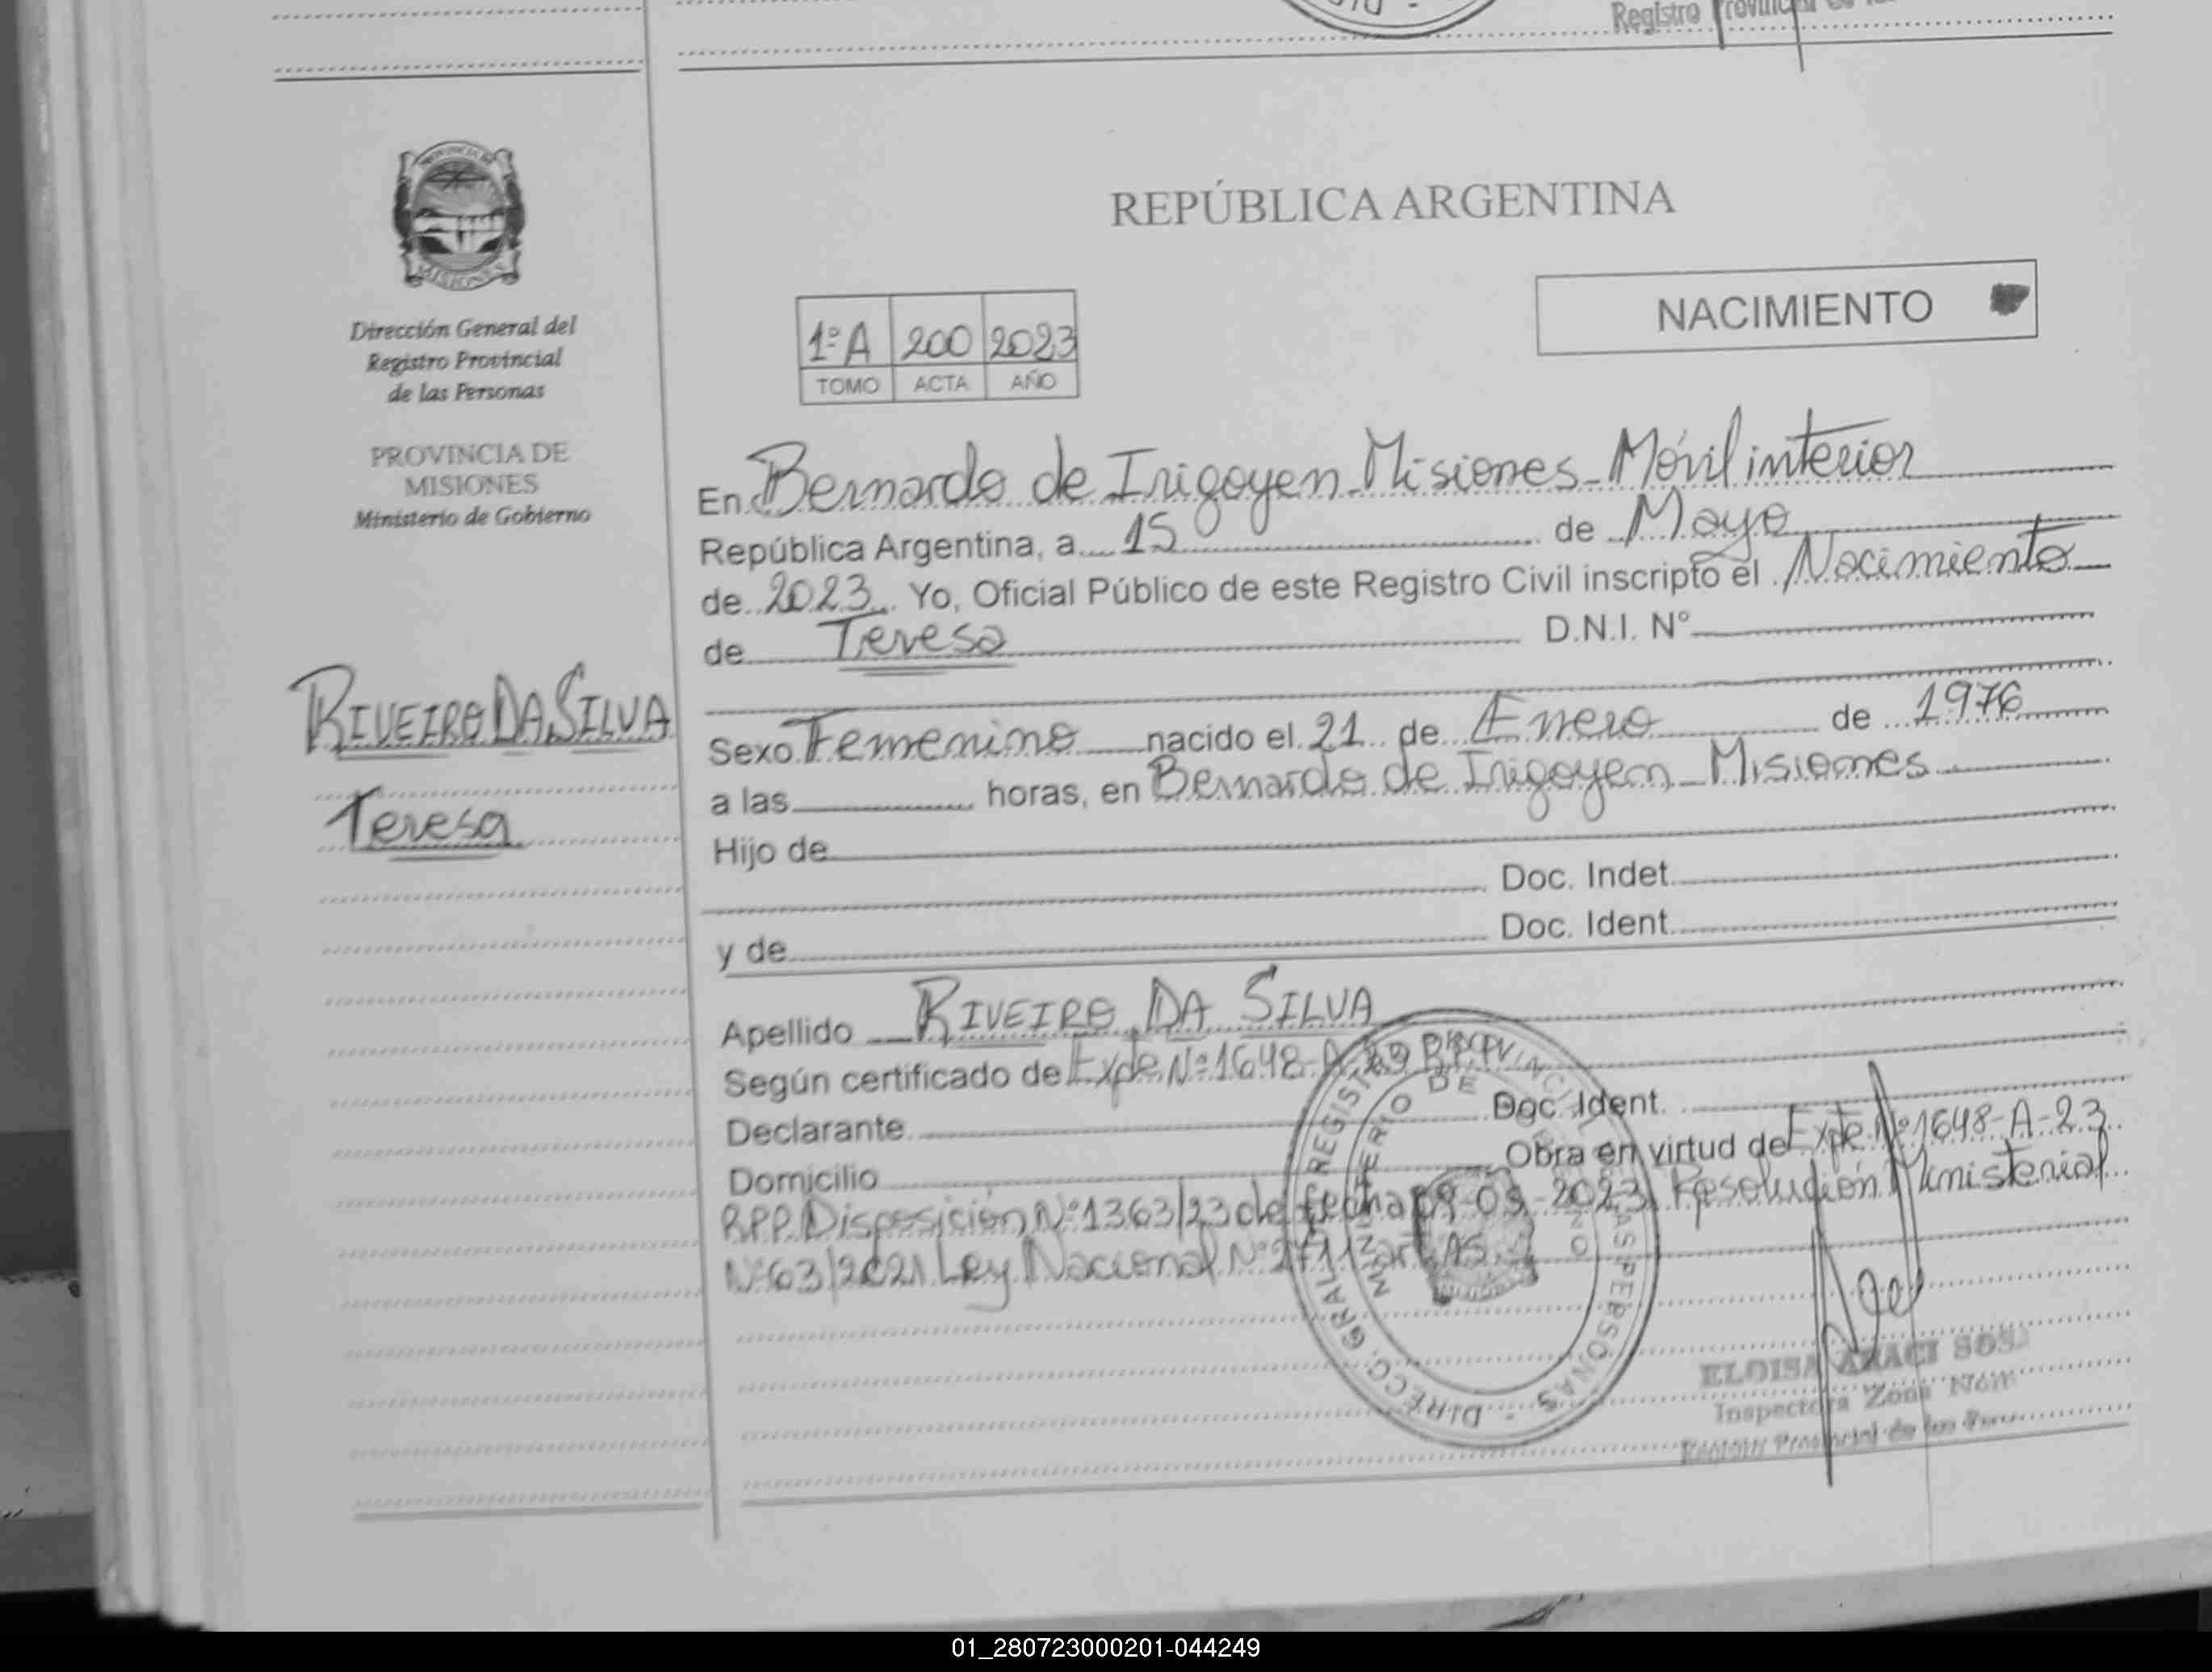 Registro
Dirección General del
Registro Provincial
de las Personas
PROVINCIA DE
MISIONES
Ministerio de Gobierno
RIVEIRO DA SILVA
Teresa
REPÚBLICA ARGENTINA
NACIMIENTO
1ºA 200 2023
TOMO ACTA AÑO
En Bernardo de Irigoyen Misiones Móvil interior
República Argentina, a 15 de Mayo
de 2023 Yo, Oficial Público de este Registro Civil inscripto el Nacimiento
de Teresa D.N.I. N°
Sexo Femenino nacido el 21 de Enero de 1976
a las horas, en Bernardo de Irigoyen Misiones
Hijo de
Doc. Indet.
y de Doc. Ident.
Apellido RIVEIRO DA SILVA
Según certificado de Expte Nº 1648-A-23 RPP
Declarante Doc. Ident.
Domicilio Obra en virtud de Expte Nº 1648-A-23
R.P.P. Disposición Nº 1363/23 de fecha 2023 Resolución Ministerial
Nº 63/2021 Ley Nacional Nº
DIRECC. GRAL. REGISTRO PROVINCIAL DE LAS PERSONAS
MINISTERIO DE GOBIERNO
ELOISA ARACI SOSA
Inspectora Zona
Registro Provincial de las
01_280723000201-044249